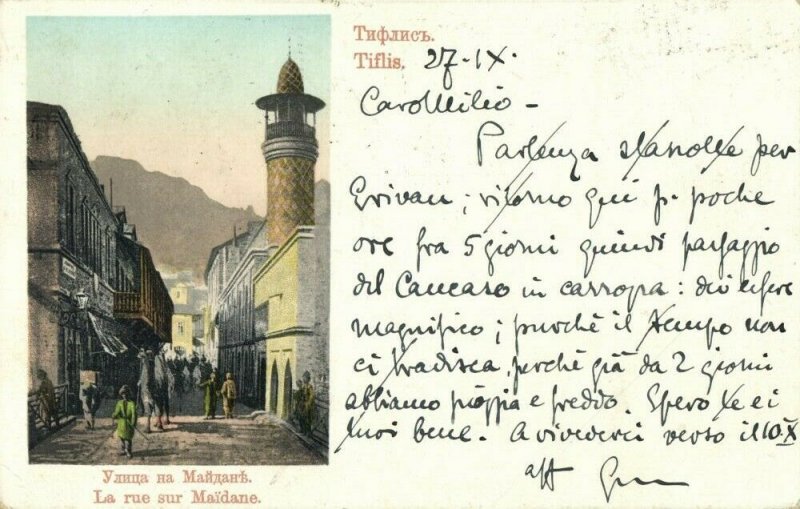 Тифлисъ.
Tiflis. 27·IX·
Caro Milio –
Partenza stanotte per
Erivan; ritorno qui p. poche
ore fra 5 giorni quindi passaggio
del Caucaso in carrozza: dev'essere
magnifico; purchè il tempo non
ci tradisca, perchè già da 2 giorni
abbiamo pioggia e freddo. Spero te e i
tuoi bene. Arivederci verso il 10.X
aff
Улица на Майданѣ.
La rue sur Maïdane.